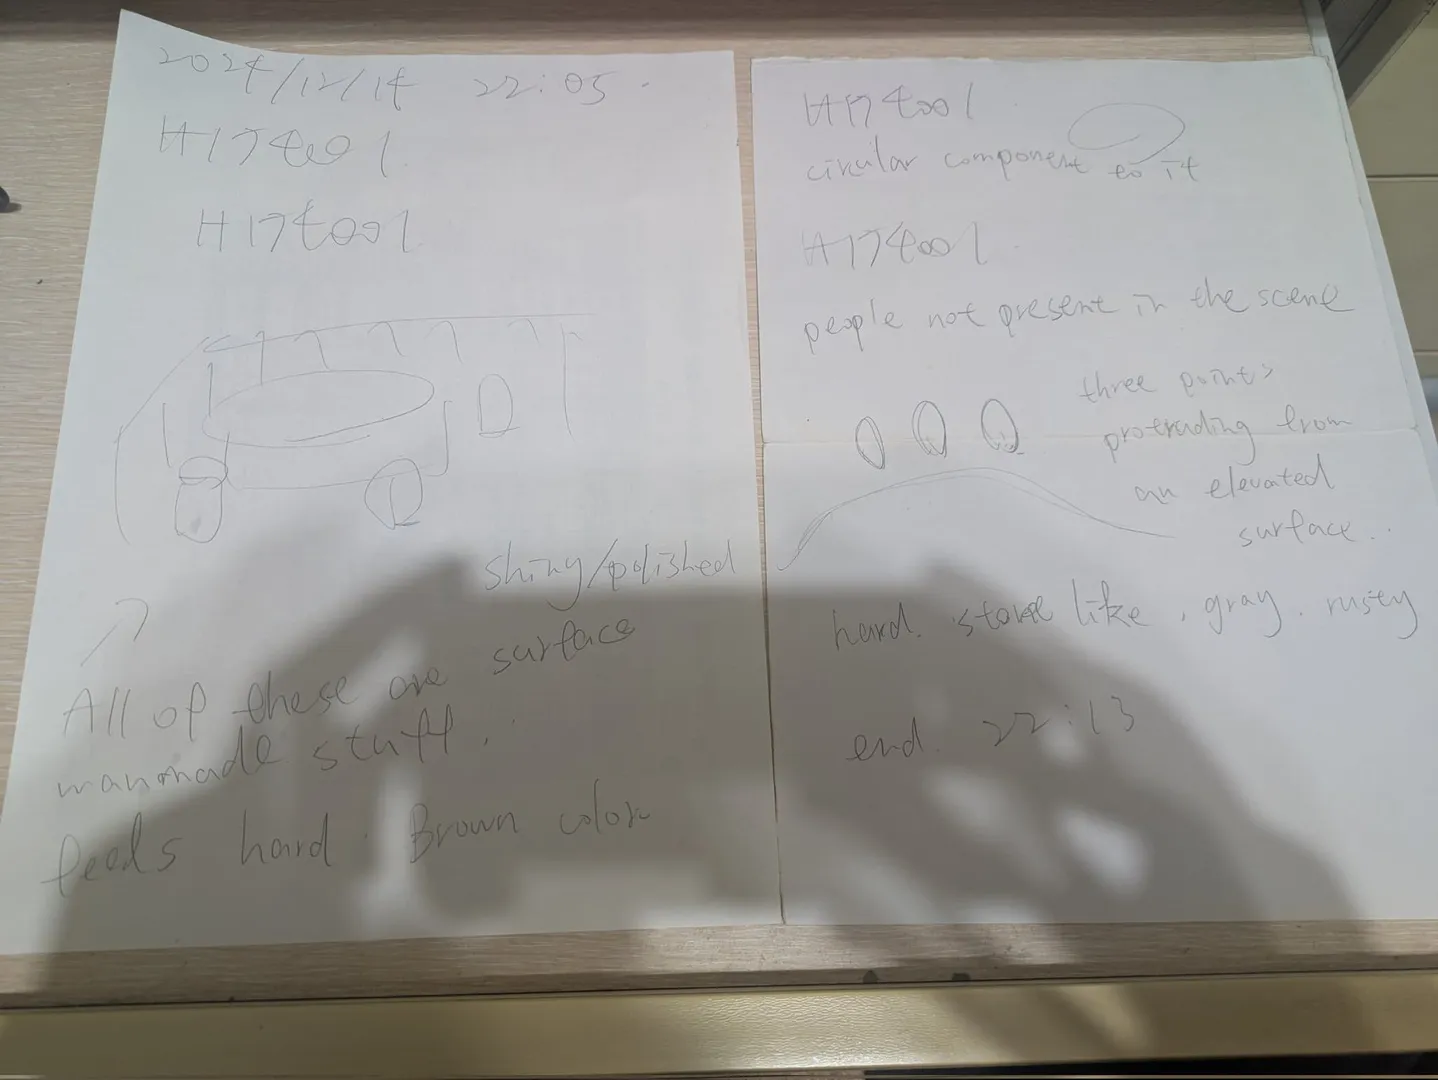 2024/12/14 22:05.
H174001
H174001
shiny/polished
surface
All of these are
manmade stuff.
feels hard. Brown color
H174001
circular component to it
H174001
people not present in the scene
three points
protruding from
an elevated
surface.
hard. stone like, gray. rusty
end. 22:13